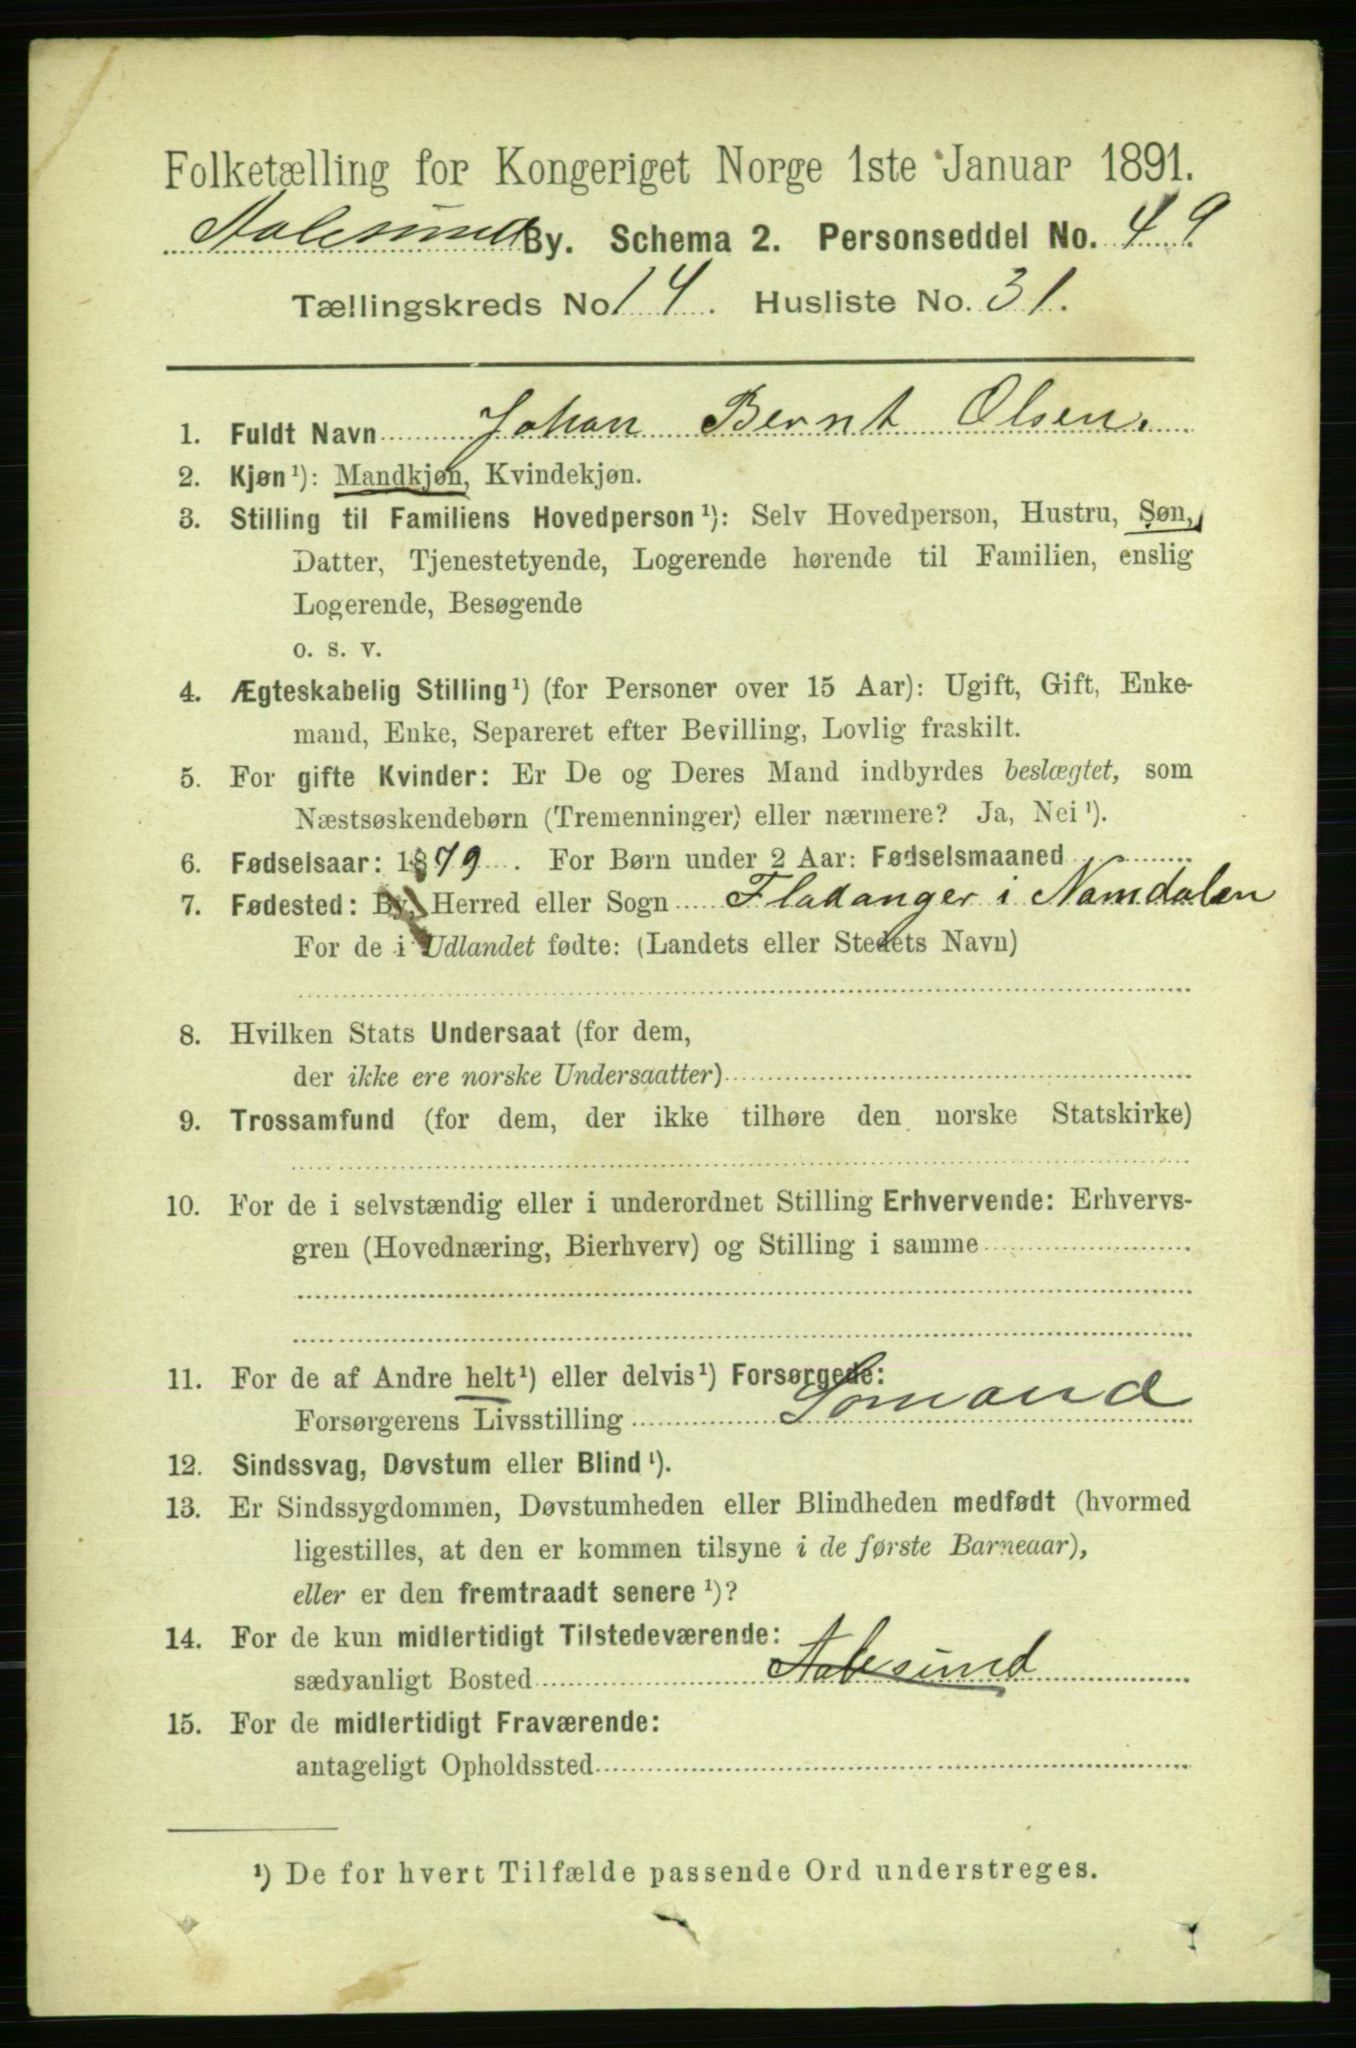 Folketælling for Kongeriget Norge 1ste Januar 1891.
Aalesund By. Schema 2. Personseddel No. 49
Tællingskreds No. 14. Husliste No. 31.
1. Fuldt Navn Johan Bernt Olsen.
2. Kjøn¹): Mandkjøn, Kvindekjøn.
3. Stilling til Familiens Hovedperson¹): Selv Hovedperson, Hustru, Søn,
Datter, Tjenestetyende, Logerende hørende til Familien, enslig
Logerende, Besøgende
o. s. v.
4. Ægteskabelig Stilling¹) (for Personer over 15 Aar): Ugift, Gift, Enke-
mand, Enke, Separeret efter Bevilling, Lovlig fraskilt.
5. For gifte Kvinder: Er De og Deres Mand indbyrdes beslægtet, som
Næstsøskendebørn (Tremenninger) eller nærmere? Ja, Nei¹).
6. Fødselsaar: 1879. For Børn under 2 Aar: Fødselsmaaned
7. Fødested: By, Herred eller Sogn Fladanger i Namdalen
For de i Udlandet fødte: (Landets eller Stedets Navn)
8. Hvilken Stats Undersaat (for dem,
der ikke ere norske Undersaatter)
9. Trossamfund (for dem, der ikke tilhøre den norske Statskirke)
10. For de i selvstændig eller i underordnet Stilling Erhvervende: Erhvervs-
gren (Hovednæring, Bierhverv) og Stilling i samme
11. For de af Andre helt¹) eller delvis¹) Forsørgede:
Forsørgerens Livsstilling Sømand
12. Sindssvag, Døvstum eller Blind¹).
13. Er Sindssygdommen, Døvstumheden eller Blindheden medfødt (hvormed
ligestilles, at den er kommen tilsyne i de første Barneaar),
eller er den fremtraadt senere¹)?
14. For de kun midlertidigt Tilstedeværende:
sædvanligt Bosted Aalesund
15. For de midlertidigt Fraværende:
antageligt Opholdssted
¹) De for hvert Tilfælde passende Ord understreges.